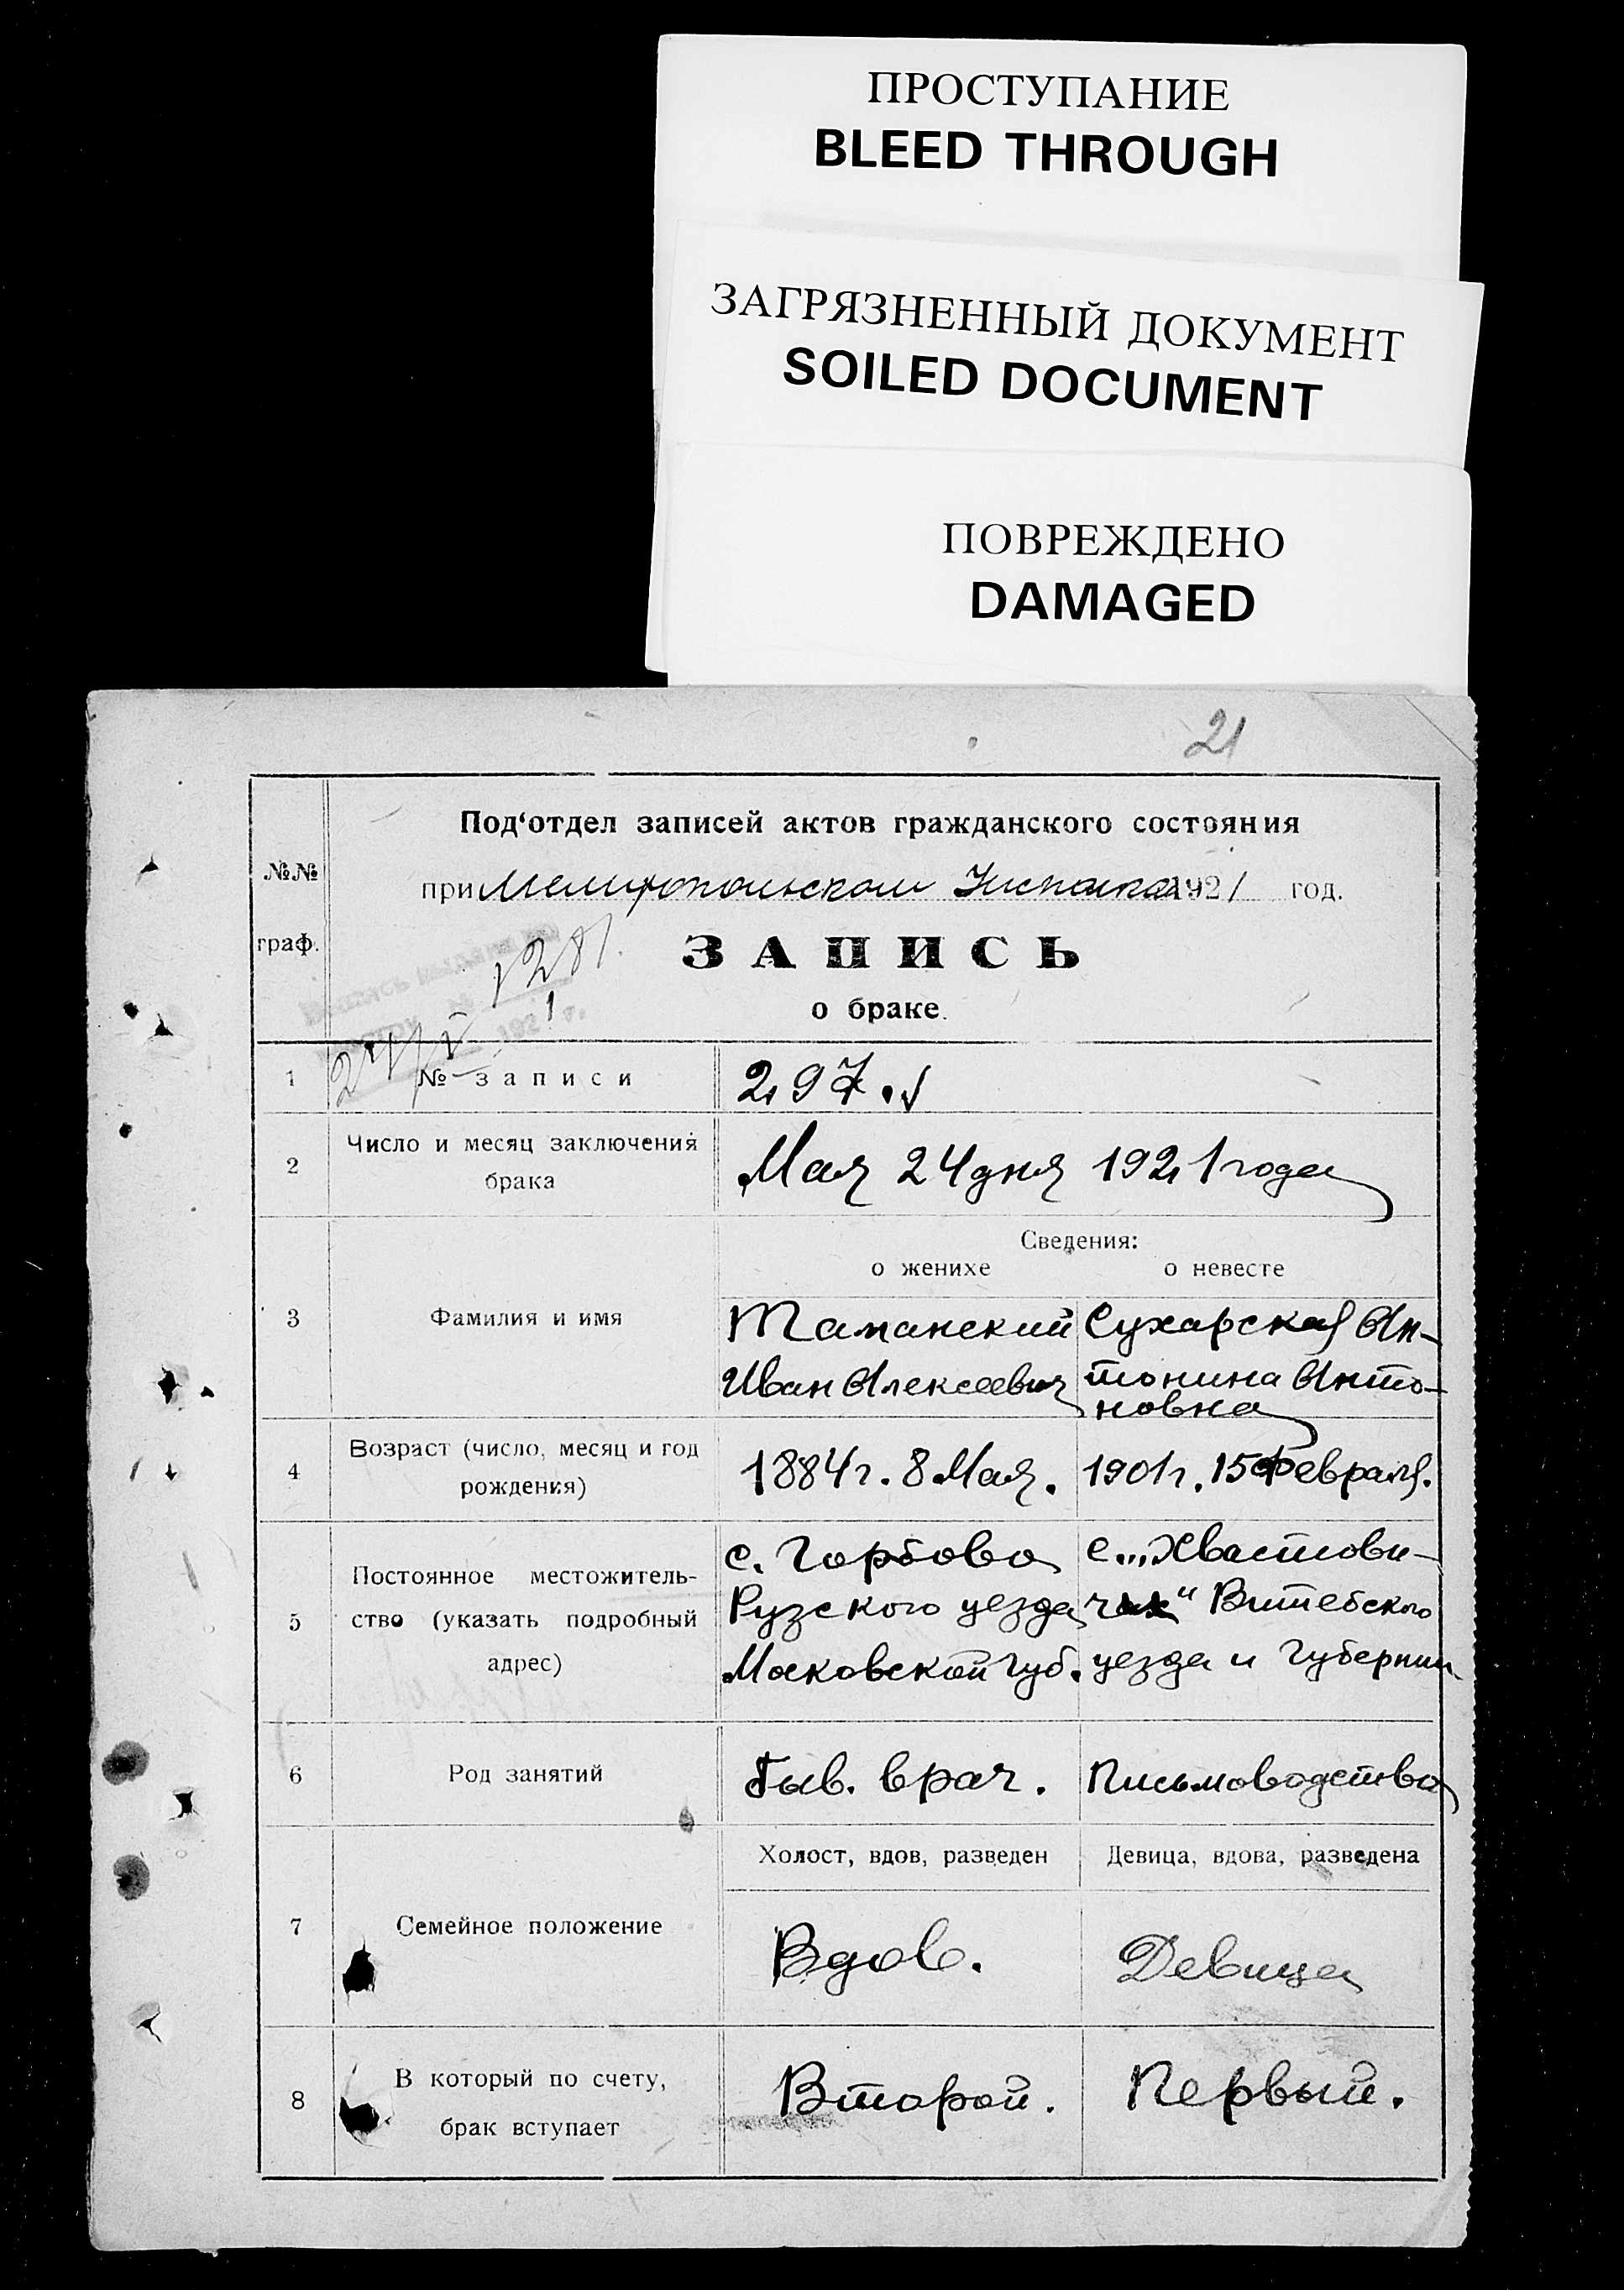 ПРОСТУПАНИЕ
BLEED THROUGH
ЗАГРЯЗНЕННЫЙ ДОКУМЕНТ
SOILED DOCUMENT
ПОВРЕЖДЕНО
DAMAGED
21
№№
граф.
Под‘отдел записей актов гражданского состояния
при Мелитопольском 1921 год.
ЗАПИСЬ
1281.
о браке.
1 № записи 297.
2 Число и месяц заключения
брака
Мая 24 дня 1921 года
Сведения:
о женихе о невесте
3 Фамилия и имя
Таманский Сухарская Ан-
Иван Алексеевич тонина Анто-
новна
4 Возраст (число, месяц и год
рождения)
1884 г. 8 Мая. 1901 г. 15 Февраля.
5 Постоянное местожитель-
ство (указать подробный
адрес)
с. Горбово с. „Хвастови-
Рузского уезда чах" Витебского
Московской губ. уезда и губернии
6 Род занятий Быв. врач. Письмоводство
Холост, вдов, разведен Девица, вдова, разведена
7 Семейное положение Вдов. Девица
8 В который по счету,
брак вступает
Второй. Первый.